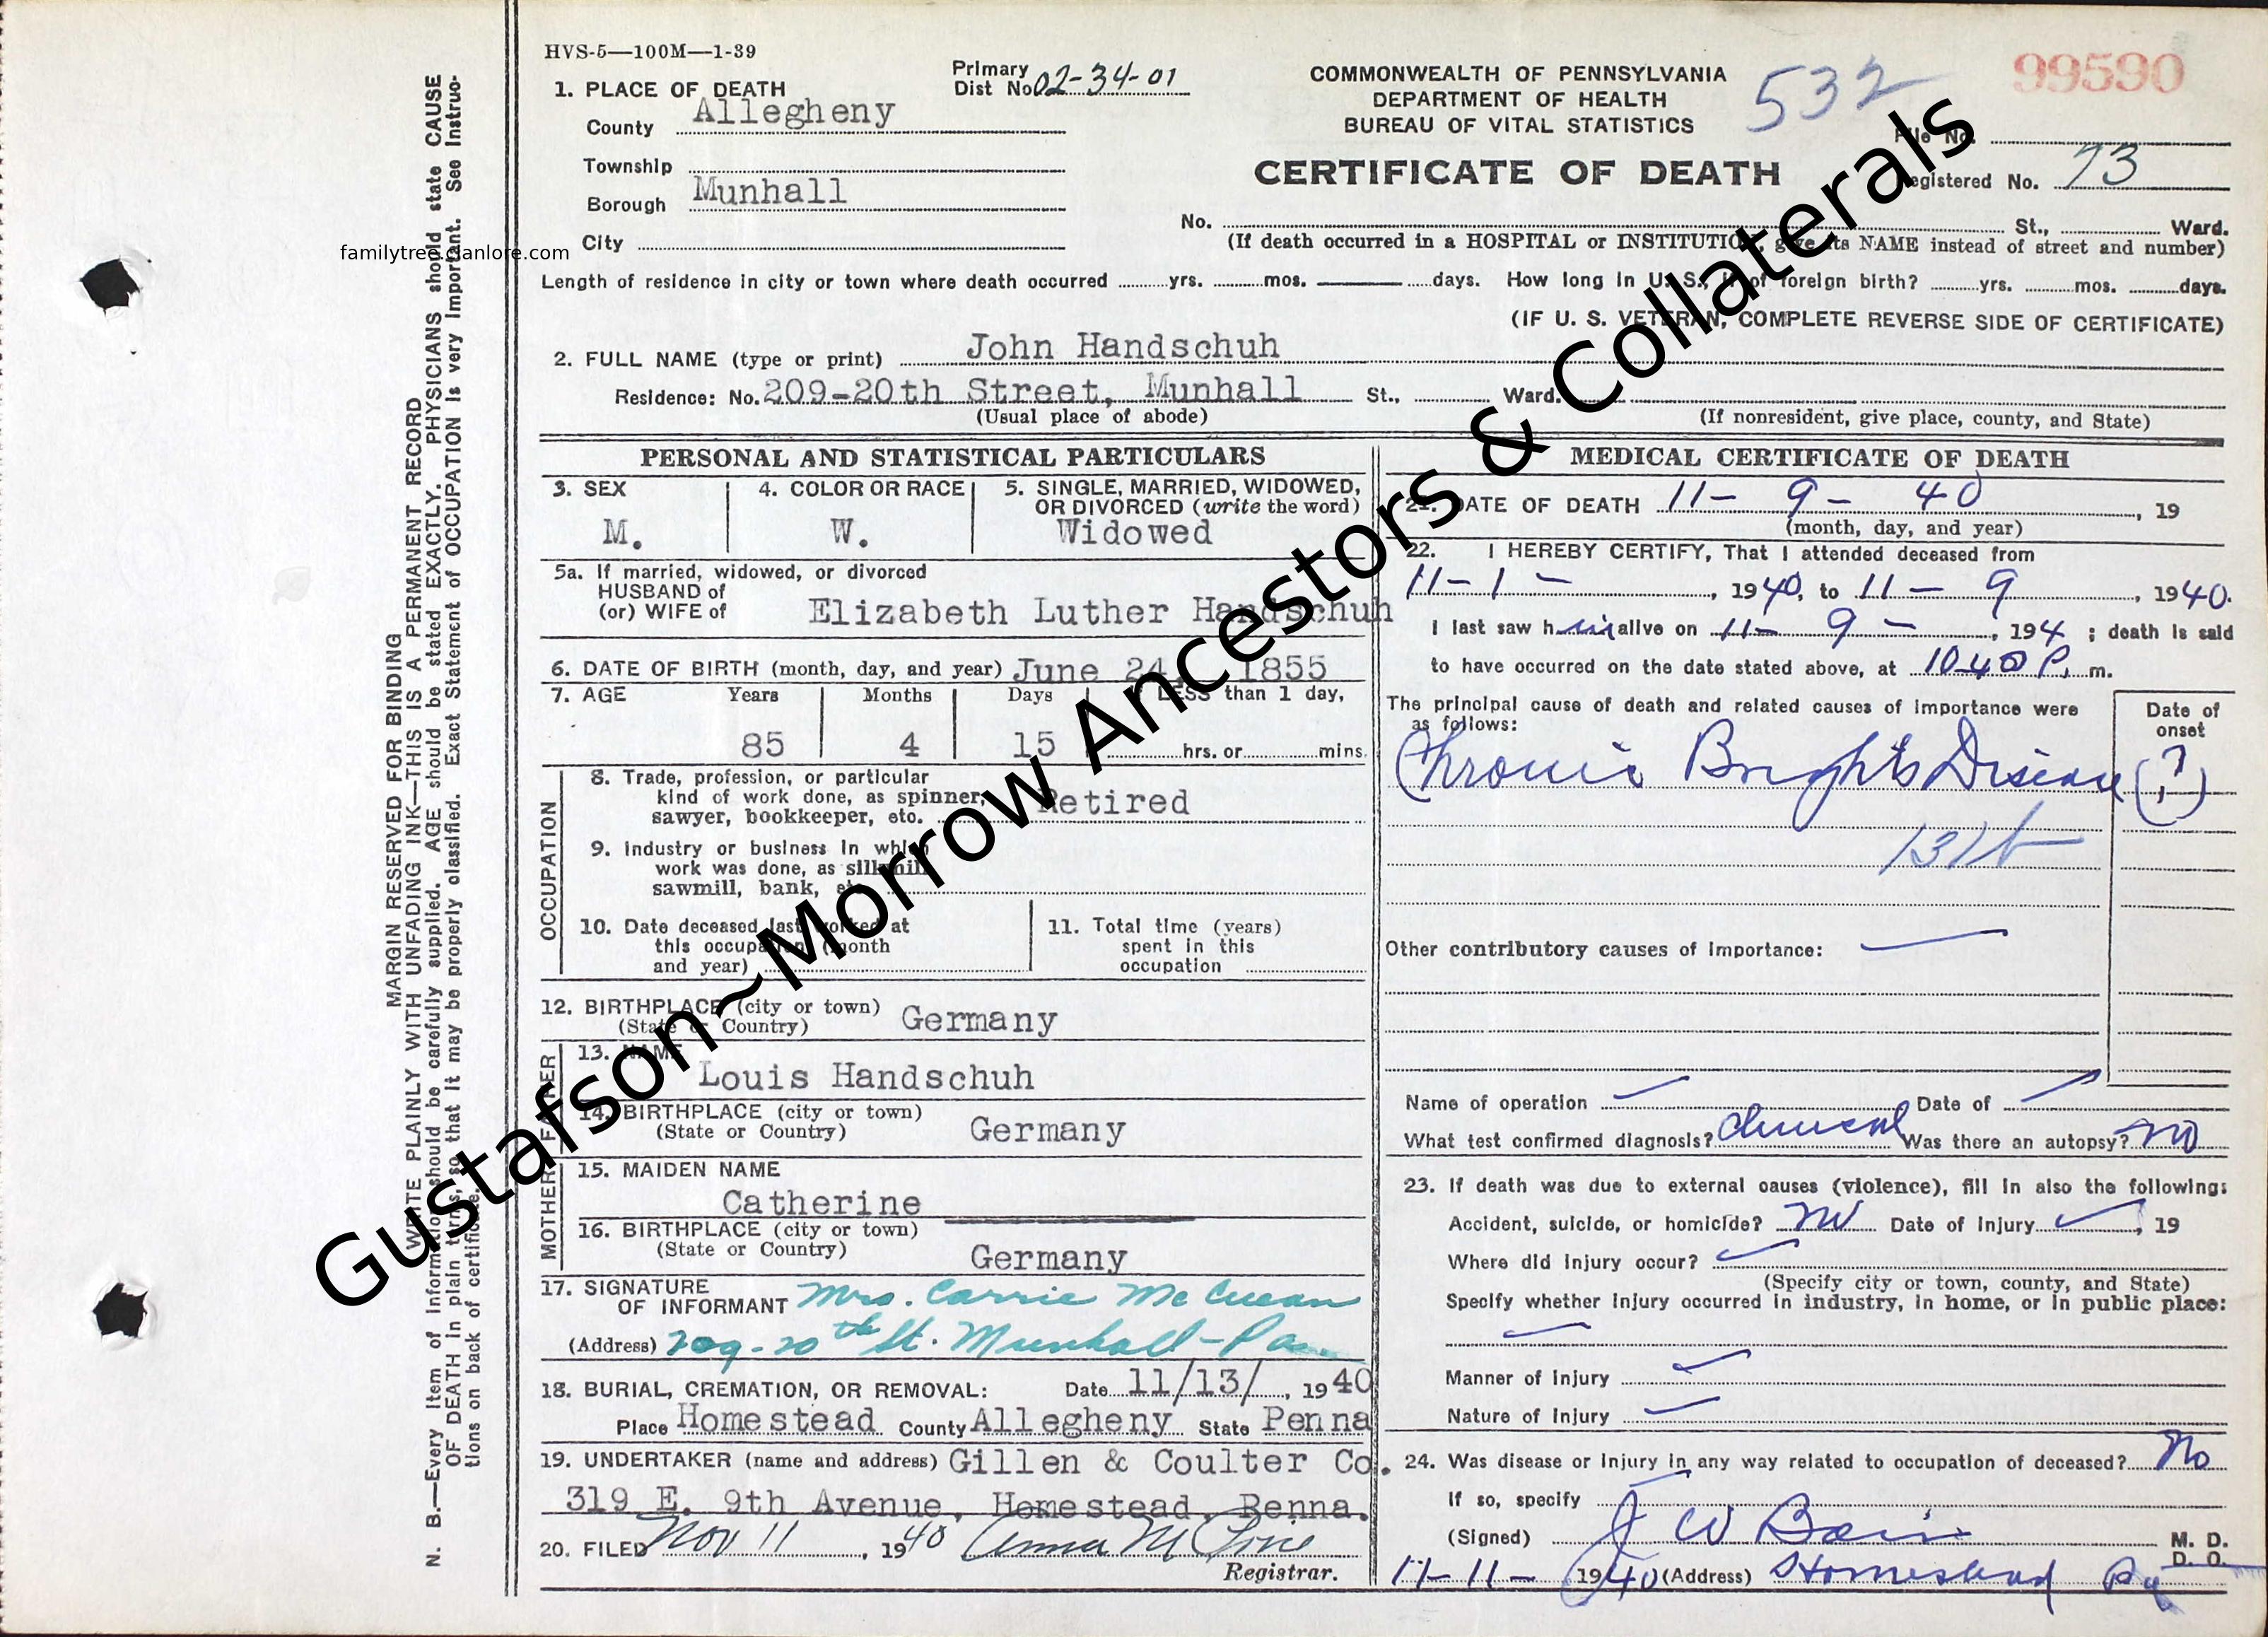 HVS-5—100M—1-39
Primary
Dist No. 02-34-01
COMMONWEALTH OF PENNSYLVANIA
DEPARTMENT OF HEALTH
BUREAU OF VITAL STATISTICS
532
99590
File No.
CERTIFICATE OF DEATH
Registered No. 73
1. PLACE OF DEATH
County Allegheny
Township
Borough Munhall
City
No. St., Ward.
(If death occurred in a HOSPITAL or INSTITUTION, give its NAME instead of street and number)
familytree.clanlore.com
Length of residence in city or town where death occurred yrs. mos. days. How long in U. S., if of foreign birth? yrs. mos. days.
(IF U. S. VETERAN, COMPLETE REVERSE SIDE OF CERTIFICATE)
2. FULL NAME (type or print) John Handschuh
Residence: No. 209-20th Street, Munhall St., Ward.
(Usual place of abode)
(If nonresident, give place, county, and State)
PERSONAL AND STATISTICAL PARTICULARS
3. SEX
M.
4. COLOR OR RACE
W.
5. SINGLE, MARRIED, WIDOWED,
OR DIVORCED (write the word)
Widowed
5a. If married, widowed, or divorced
HUSBAND of
(or) WIFE of Elizabeth Luther Handschuh
6. DATE OF BIRTH (month, day, and year) June 24, 1855
7. AGE Years Months Days If LESS than 1 day,
85 4 15 hrs. or mins.
OCCUPATION
8. Trade, profession, or particular
kind of work done, as spinner,
sawyer, bookkeeper, etc. Retired
9. Industry or business in which
work was done, as silk mill,
sawmill, bank, etc.
10. Date deceased last worked at
this occupation (month
and year)
11. Total time (years)
spent in this
occupation
12. BIRTHPLACE (city or town)
(State or Country) Germany
FATHER
13. NAME
Louis Handschuh
14. BIRTHPLACE (city or town)
(State or Country) Germany
MOTHER
15. MAIDEN NAME
Catherine
16. BIRTHPLACE (city or town)
(State or Country) Germany
17. SIGNATURE
OF INFORMANT Mrs. Carrie McCuean
(Address) 209-20th St. Munhall-Pa.
18. BURIAL, CREMATION, OR REMOVAL: Date 11/13/, 1940
Place Homestead County Allegheny State Penna
19. UNDERTAKER (name and address) Gillen & Coulter Co.
319 E. 9th Avenue, Homestead, Penna.
20. FILED Nov 11, 1940 Anna M
Registrar.
MEDICAL CERTIFICATE OF DEATH
21. DATE OF DEATH 11- 9- 40, 19
(month, day, and year)
22. I HEREBY CERTIFY, That I attended deceased from
11-1-, 1940, to 11-9, 1940.
I last saw him alive on 11-9-, 194 ; death is said
to have occurred on the date stated above, at 10-40 P. m.
The principal cause of death and related causes of importance were
as follows:
Date of
onset
Chronic Brights Disease (?)
131b
Other contributory causes of importance:
Name of operation Date of
What test confirmed diagnosis? clinical Was there an autopsy? no
23. If death was due to external causes (violence), fill in also the following:
Accident, suicide, or homicide? no Date of injury, 19
Where did injury occur?
(Specify city or town, county, and State)
Specify whether injury occurred in industry, in home, or in public place:
Manner of injury
Nature of injury
24. Was disease or injury in any way related to occupation of deceased? No
If so, specify
(Signed) J W Bair M. D.
D. O.
11-11-1940 (Address) Homestead Pa
MARGIN RESERVED FOR BINDING
WRITE PLAINLY WITH UNFADING INK—THIS IS A PERMANENT RECORD
N. B.—Every item of information should be carefully supplied. AGE should be stated EXACTLY. PHYSICIANS should state CAUSE
OF DEATH in plain terms, so that it may be properly classified. Exact Statement of OCCUPATION is very important. See Instruc-
tions on back of certificate.
Gustafson~Morrow Ancestors & Collaterals